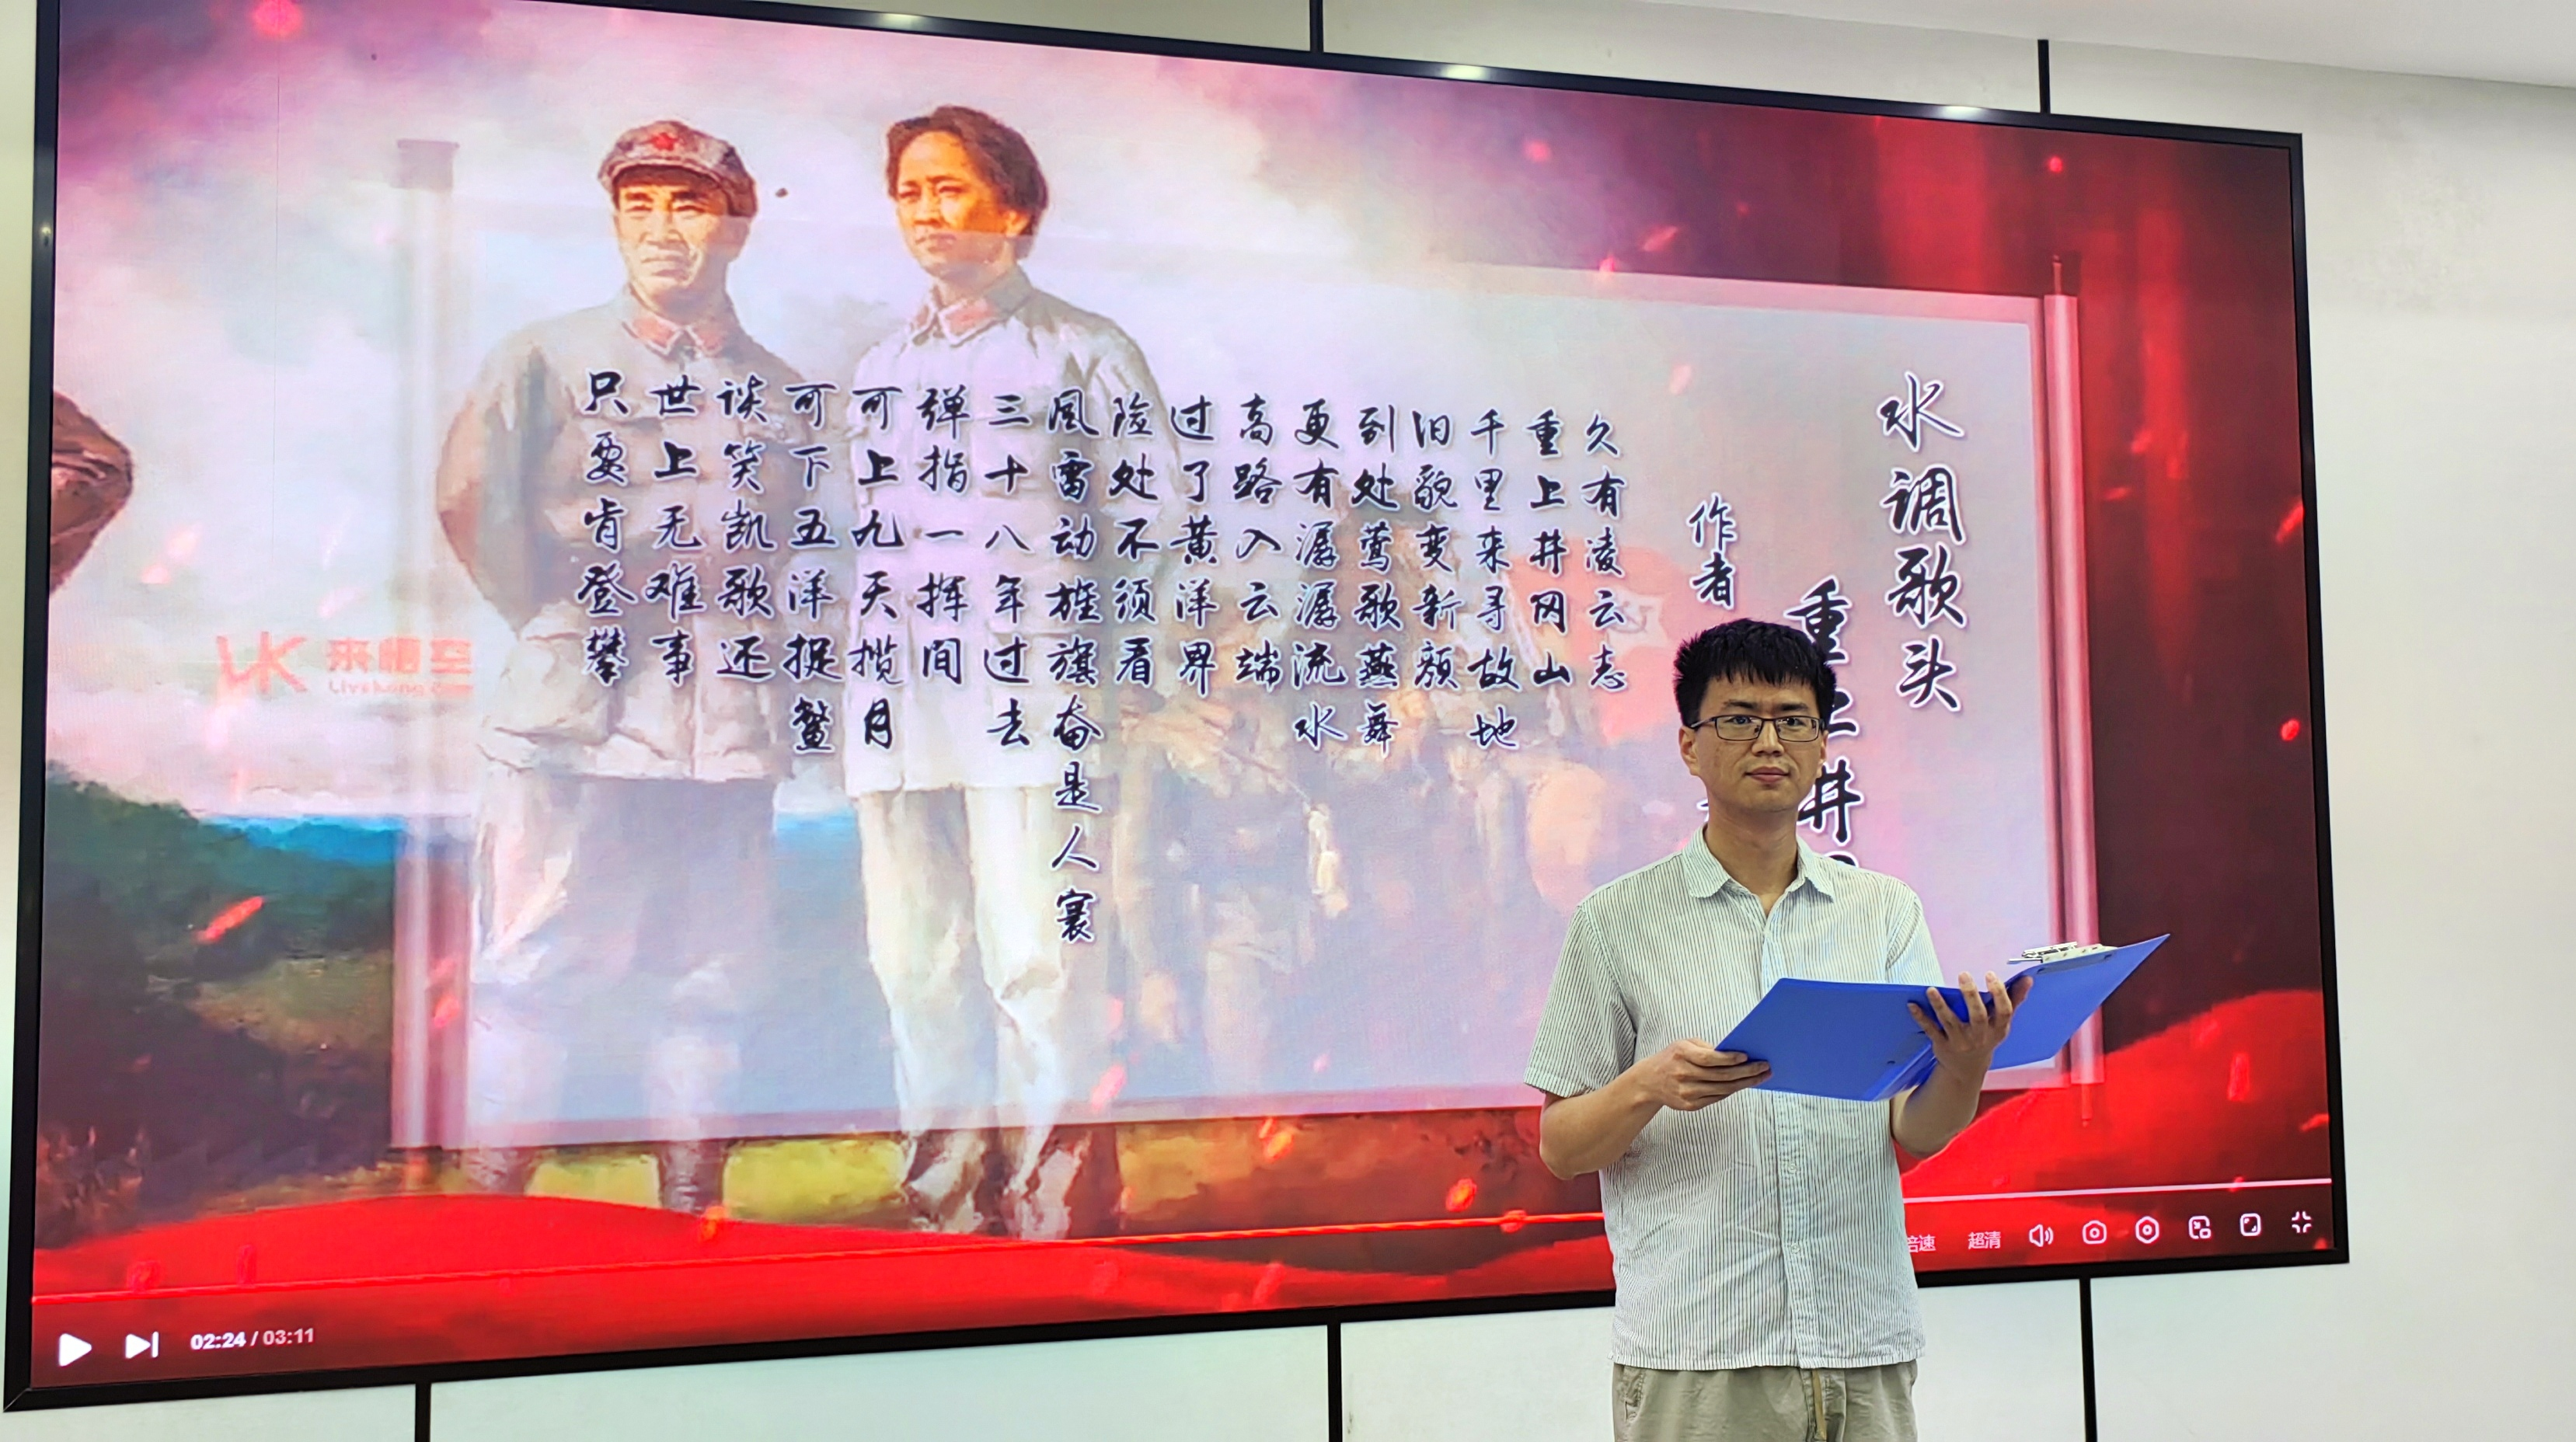 水调歌头
重上井
作者
久有凌云志
重上井冈山
千里来寻故地
旧貌变新颜
到处莺歌燕舞
更有潺潺流水
高路入云端
过了黄洋界
险处不须看
风雷动旌旗奋是人寰
三十八年过去
弹指一挥间
可上九天揽月
可下五洋捉鳖
谈笑凯歌还
世上无难事
只要肯登攀
VK 来悟空
倍速 超清
02:24 / 03:11